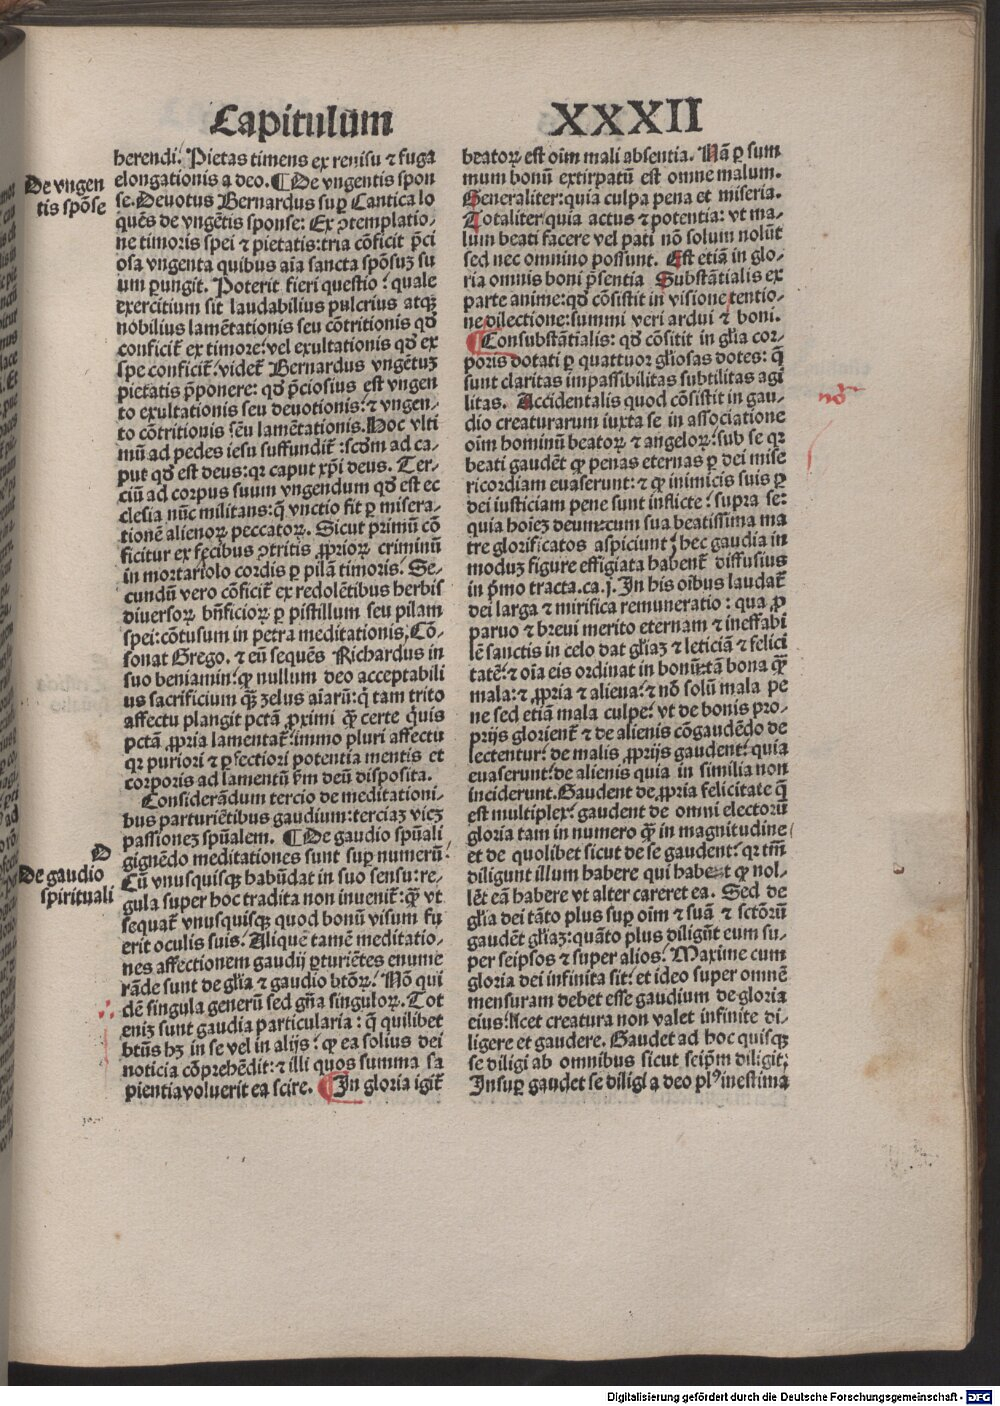 Capitulum XXXII
De vngen
tis spōse
herendi. Pietas timens ex renisu ⁊ fuga
elongationis a deo. ¶De vngentis spon
se. Deuotus Bernardus suꝑ Cantica lo
quēs de vngētis sponse: Ex ꝯtemplatio⸗
ne timoris spei ⁊ pietatis: tria cōficit p̄ci
osa vngenta quibus aīa sancta spōsuꝫ su
um ꝑungit. Poterit fieri questio: quale
exercitium sit laudabilius pulcrius atqꝫ
nobilius lamētationis seu cōtritionis qđ
conficit̄ ex timore: vel exultationis qđ ex
spe conficit̄: videt̄ Bernardus vngētuꝫ
pietatis p̄ponere: qđ p̄ciosius est vngen
to exultationis seu deuotionis: ⁊ vngen⸗
to cōtritionis seu lamētationis. Hoc vlti
mū ad pedes iesu suffundit̄: scđm ad ca⸗
put qđ est deus: qꝛ caput xp̄i deus. Ter⸗
ciū ad corpus suum vngendum qđ est ec
clesia nūc militans: q̄ vnctio fit ꝑ misera⸗
tionē alienoꝝ peccatoꝝ. Sicut primū cō
ficitur ex fecibus ꝯtritis ꝓprioꝝ criminū
in mortariolo cordis ꝑ pilā timoris. Se⸗
cundū vero cōficit̄ ex redolētibus herbis
diuersoꝝ bn̄ficioꝝ ꝑ pistillum seu pilam
spei: cōtusum in petra meditationis. Cō⸗
sonat Grego. ⁊ eū sequēs Richardus in
suo beniamin: ꝙ nullum deo acceptabili
us sacrificium ꝙ̄ ʒelus aīarū: q̄ tam trito
affectu plangit pctā ꝓximi ꝙ̄ certe q̇uis
pctā ꝓpria lamentat̄: immo pluri affectu
qꝛ puriori ⁊ ꝑfectiori potentia mentis et
corporis ad lamentū fm deū disposita.
Considerādum tercio de meditationi⸗
bus parturiētibus gaudium: terciaꝫ viꝫ
passioneꝫ spūalem. ¶De gaudio spūali
D
De gaudio
spirituali
gignēdo meditationes sunt suꝑ numerū:
Cū vnusquisqꝫ habūdat in suo sensu: re⸗
gula super hoc tradita non inuenit̄: ꝙ̄ vt
sequat̄ vnusquisqꝫ quod bonū visum fu
erit oculis suis. Aliquē tamē meditatio⸗
nes affectionem gaudij ꝑturiētes enume
rāde sunt de gl̄ia ⁊ gaudio btōꝝ: Nō qui
dē singula generū sed gn̄a singuloꝝ. Tot
eniꝫ sunt gaudia particularia: q̄ quilibet
btūs hꝫ in se vel in alijs: ꝙ ea solius dei
noticia cōprehēdit: ⁊ illi quos summa sa
pientia voluerit ea scire. ¶In gloria igit̄
beatoꝝ est oīm mali absentia. Nā ꝑ sum
mum bonū extirpatū est omne malum.
Generaliter: quia culpa pena et miseria.
Totaliter quia actus ⁊ potentia: vt ma⸗
lum beati facere vel pati nō solum nolūt
sed nec omnino possunt. Est etiā in glo⸗
ria omnis boni p̄sentia Substātialis ex
parte anime: qđ cōsistit in visione tentio⸗
ne dilectione: summi veri ardui ⁊ boni.
¶Consubstātialis: qđ cōsitit in gl̄ia cor⸗
poris dotati ꝑ quattuor gl̄iosas dotes: q̄
sunt claritas impassibilitas subtilitas agi
litas. Accidentalis quod cōsistit in gau⸗
nō
dio creaturarum iuxta se in associatione
oīm hominū beatoꝝ ⁊ angeloꝝ: sub se qꝛ
beati gaudēt ꝙ penas eternas ꝑ dei mise
ricordiam euaserunt: ⁊ ꝙ inimicis suis ꝑ
dei iusticiam pene sunt inflicte: supra se:
quia hoīeꝫ deum: cum sua beatissima ma
tre glorificatos aspiciunt: hec gaudia in
moduꝫ figure effigiata habent̄ diffusius
in p̄mo tracta. ca. j. In his oībus laudat̄
dei larga ⁊ mirifica remuneratio: qua ꝓ
paruo ⁊ breui merito eternam ⁊ ineffabi
lē sanctis in celo dat gl̄iaꝫ ⁊ leticiā ⁊ felici
tatē: ⁊ oīa eis ordinat in bonū: tā bona ꝙ̄
mala: ⁊ ꝓpria ⁊ aliena: ⁊ nō solū mala pe
ne sed etiā mala culpe: vt de bonis pro⸗
prijs glorient̄ ⁊ de alienis cōgaudēdo de
lectentur: de malis ꝓprijs gaudent: quia
euaserunt: de alienis quia in similia non
inciderunt. Gaudent de ꝓpria felicitate q̄
est multiplex: gaudent de omni electorū
gloria tam in numero ꝙ̄ in magnitudine
et de quolibet sicut de se gaudent: qꝛ tm̄
diligunt illum habere qui habet ꝙ nol⸗
lēt eā habere vt alter careret ea. Sed de
gl̄ia dei tāto plus suꝑ oīm ⁊ suā ⁊ sctōrū
gaudēt gl̄iaꝫ: quāto plus diligūt eum su⸗
per seipsos ⁊ super alios: Maxime cum
gloria dei infinita sit: et ideo super omnē
mensuram debet esse gaudium de gloria
eius: licet creatura non valet infinite di⸗
ligere et gaudere. Gaudet ad hoc quisqꝫ
se diligi ab omnibus sicut seip̄m diligit:
Insuꝑ gaudet se diligi a deo plꝰ inestima
Digitalisierung gefördert durch die Deutsche Forschungsgemeinschaft - DFG